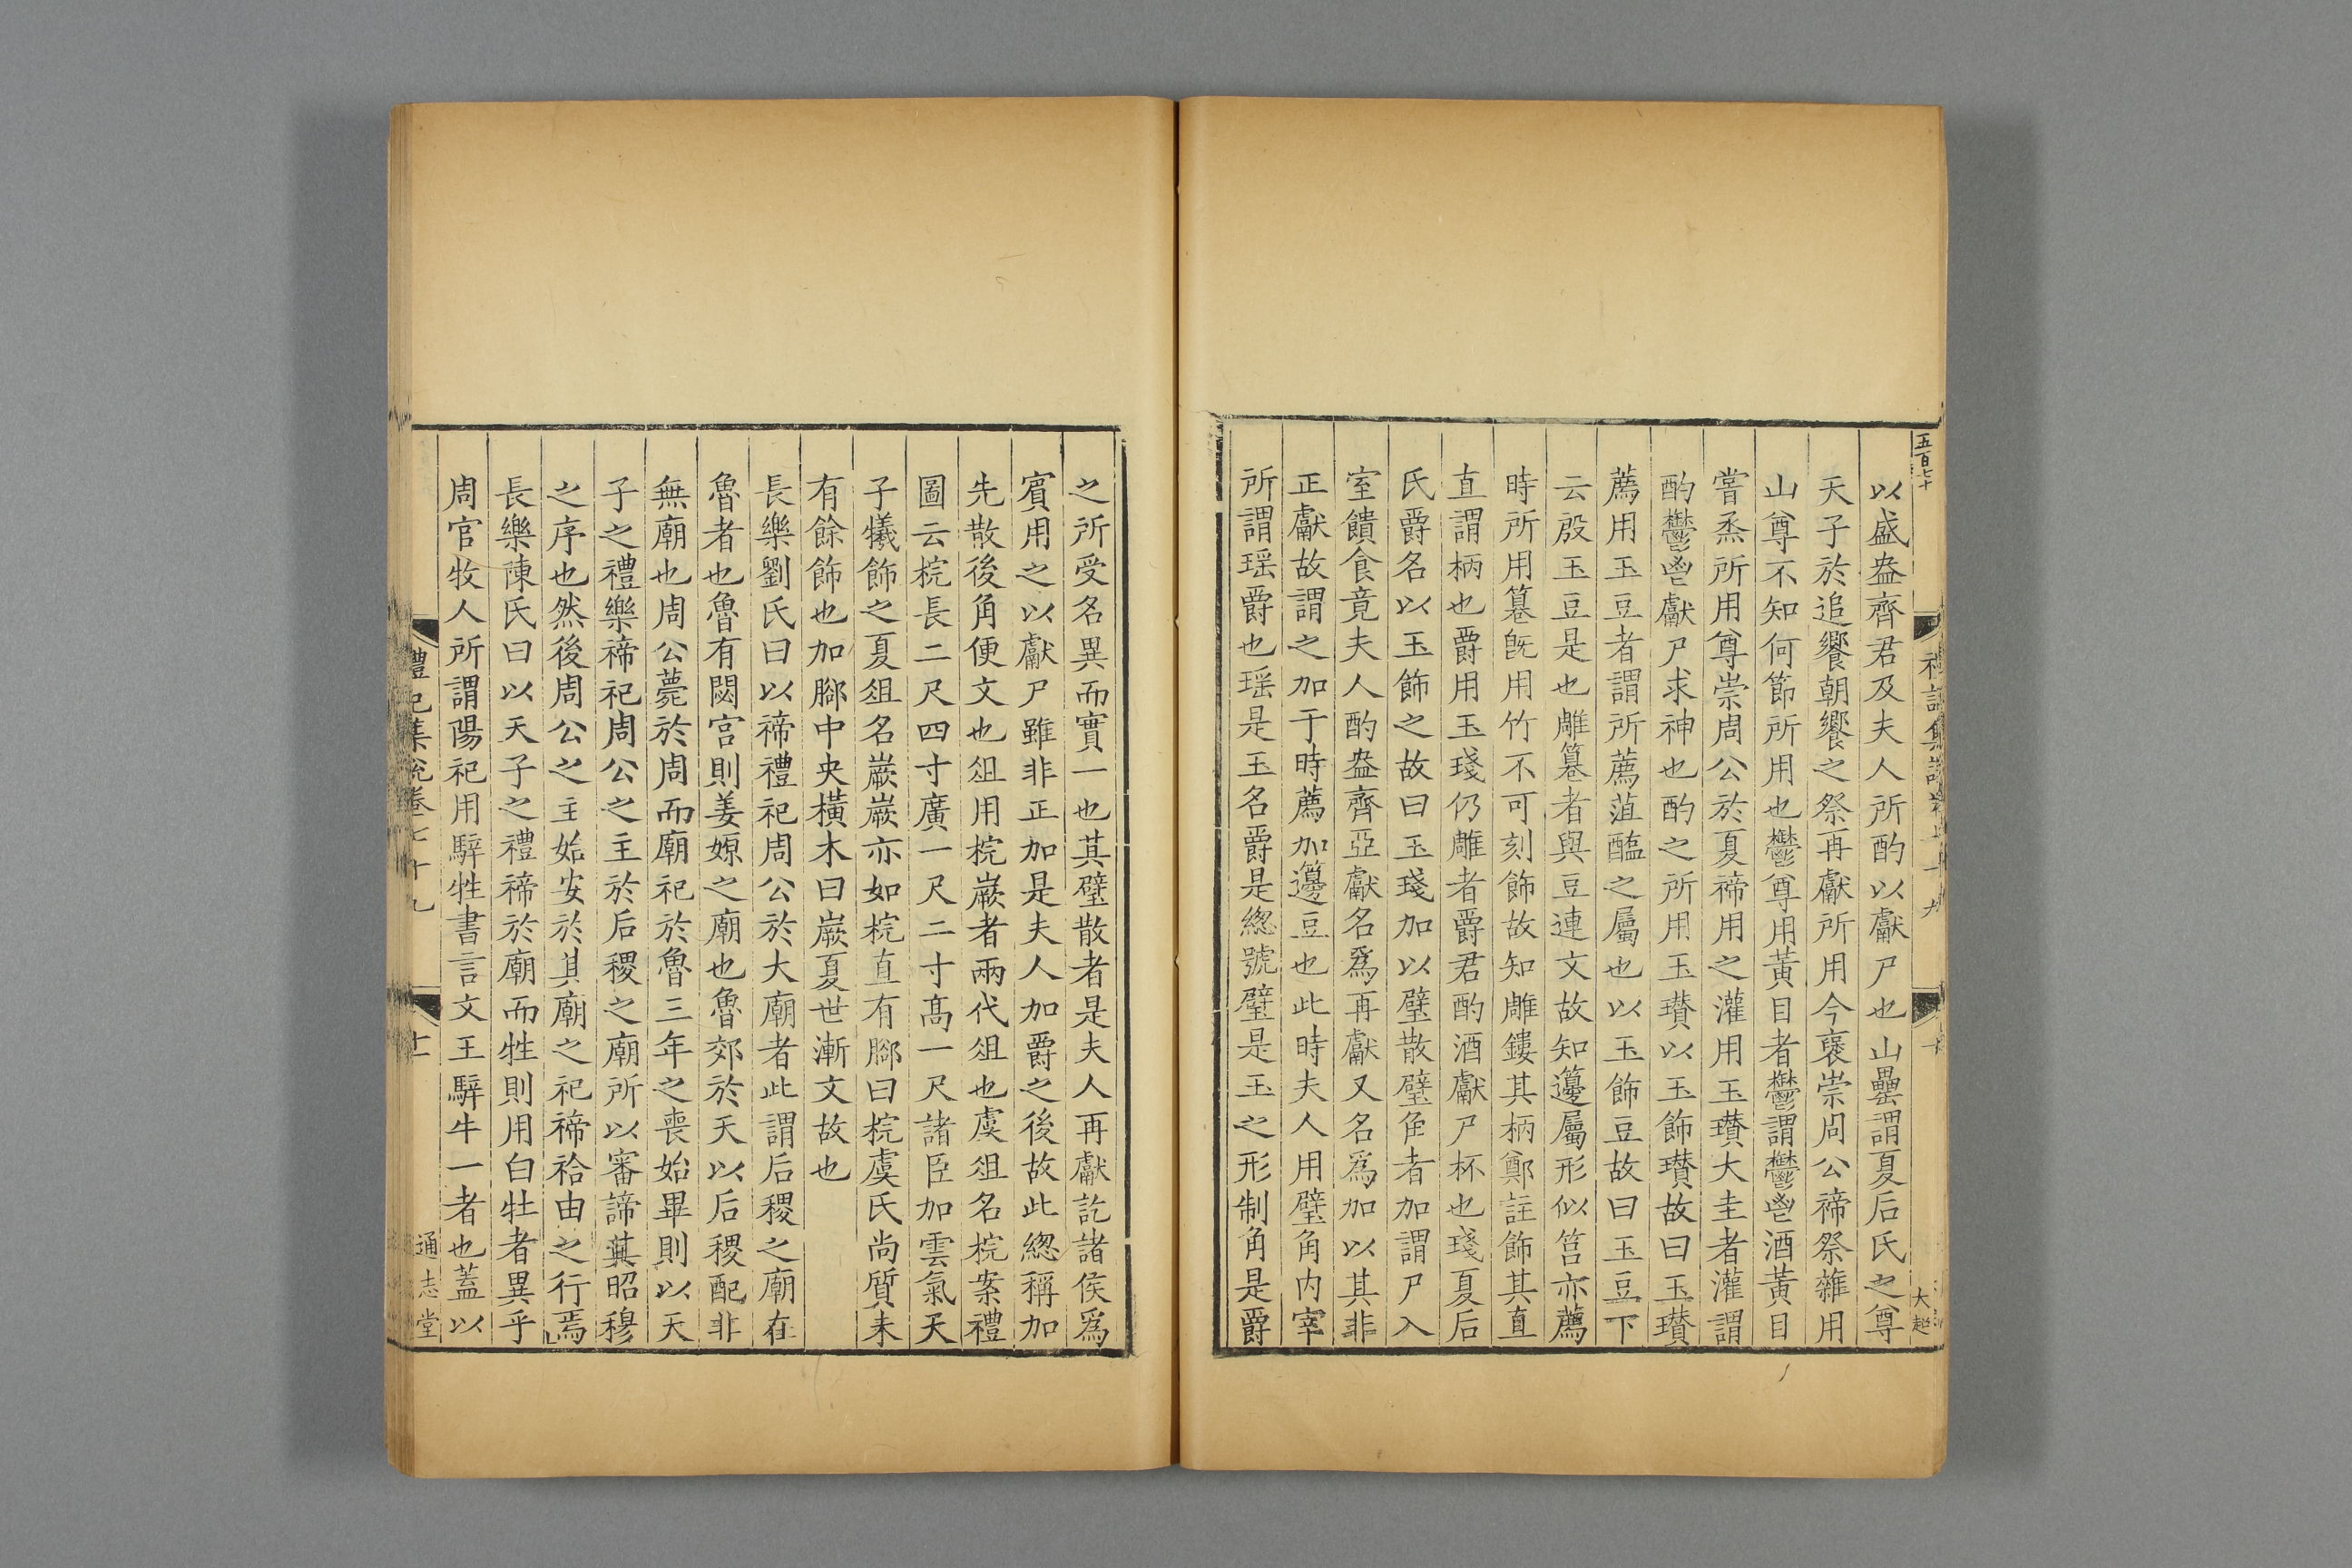 五百七十
以盛盎齊君及夫人所酌以獻尸也山罍謂夏后氏之尊
天子於追饗朝饗之祭再獻所用今襃崇周公禘祭雜用
山尊不知何節所用也鬱尊用黃目者鬱謂鬱鬯酒黃目
嘗烝所用尊崇周公於夏禘用之灌用玉瓚大圭者灌謂
酌鬱鬯獻尸求神也酌之所用玉瓚以玉飾瓚故曰玉瓚
薦用玉豆者謂所薦菹醢之屬也以玉飾豆故曰玉豆下
云殷玉豆是也雕篹者與豆連文故知籩屬形似筥亦薦
時所用篹旣用竹不可刻飾故知雕鏤其柄鄭註飾其直
直謂柄也爵用玉琖仍雕者爵君酌酒獻尸杯也琖夏后
氏爵名以玉飾之故曰玉琖加以璧散璧角者加謂尸入
室饋食竟夫人酌盎齊亞獻名爲再獻又名爲加以其非
正獻故謂之加于時薦加籩豆也此時夫人用璧角內宰
所謂瑶爵也瑶是玉名爵是緫號璧是玉之形制角是爵
之所受名異而實一也其璧散者是夫人再獻訖諸侯爲
賓用之以獻尸雖非正加是夫人加爵之後故此緫稱加
先散後角便文也俎用梡嶡者兩代俎也虞俎名梡案禮
圖云梡長二尺四寸廣一尺二寸高一尺諸臣加雲氣天
子犧飾之夏俎名嶡嶡亦如梡直有腳曰梡虞氏尚質未
有餘飾也加腳中央橫木曰嶡夏世漸文故也
長樂劉氏曰以禘禮祀周公於大廟者此謂后稷之廟在
魯者也魯有閟宮則姜嫄之廟也魯郊於天以后稷配非
無廟也周公薨於周而廟祀於魯三年之喪始畢則以天
子之禮樂禘祀周公之主於后稷之廟所以審諦其昭穆
之序也然後周公之主始安於其廟之祀禘祫由之行焉
長樂陳氏曰以天子之禮禘於廟而牲則用白牡者異乎
周官牧人所謂陽祀用騂牲書言文王騂牛一者也蓋以
禮記集說卷七十九
十一
通志堂